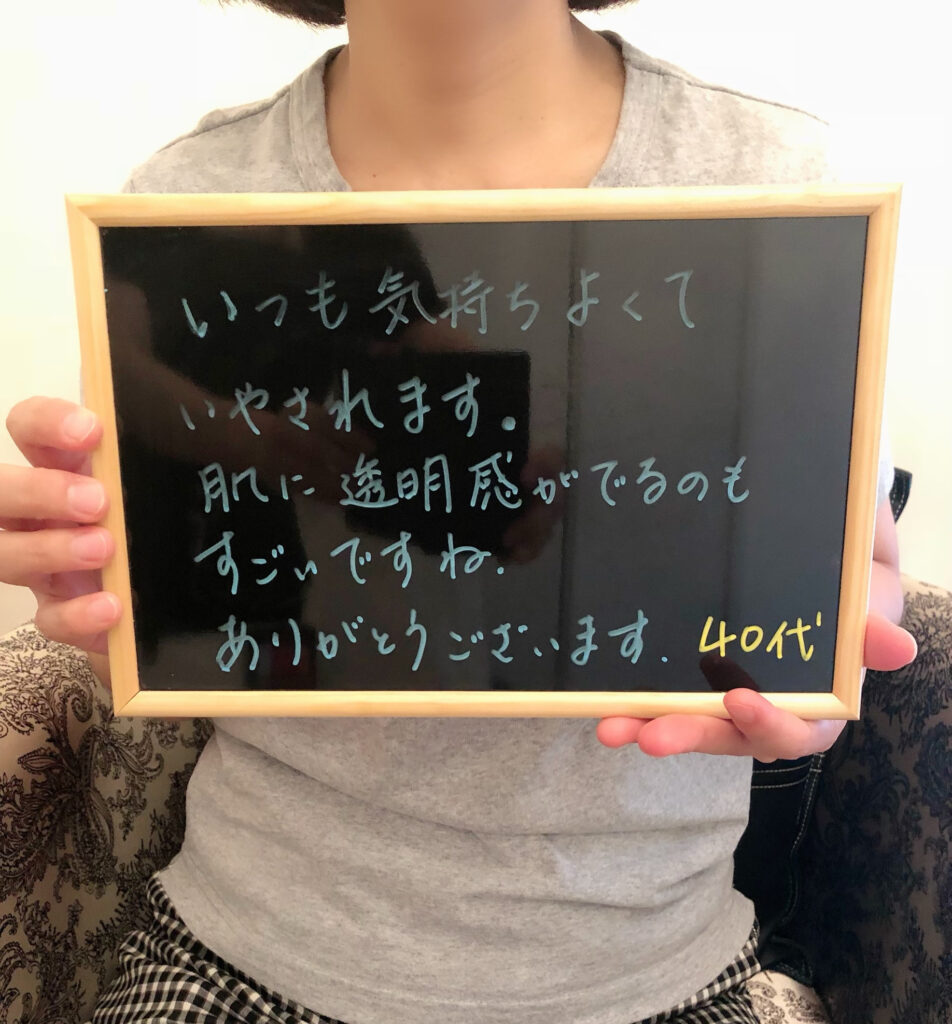 いつも気持ちよくて
いやされます。
肌に透明感がでるのも
すごいですね.
ありがとうございます. 40代